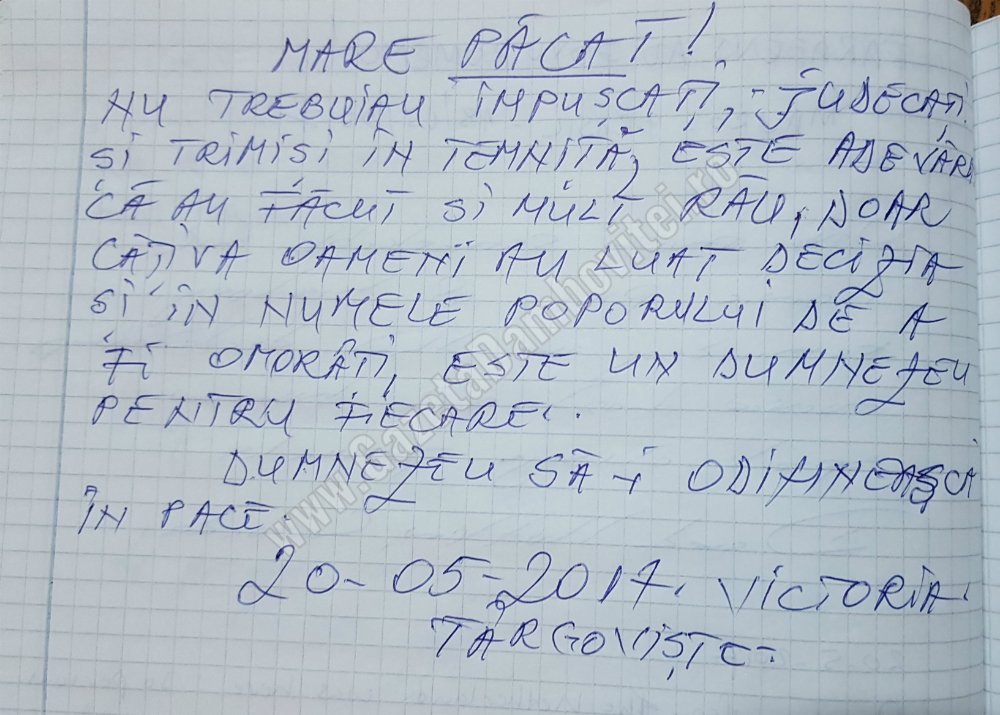 MARE PĂCAT!
NU TREBUIAU ÎMPUȘCAȚI, - JUDECAȚI
ȘI TRIMIȘI ÎN TEMNIȚĂ, ESTE ADEVĂR
CĂ AU FĂCUT ȘI MULT RĂU, DOAR
CÂȚIVA OAMENI AU LUAT DECIZIA
ȘI ÎN NUMELE POPORULUI DE A
FI OMORÂȚI, ESTE UN DUMNEZEU
PENTRU FIECARE.
DUMNEZEU SĂ-I ODIHNEASCĂ
ÎN PACE.
20-05-2017. VICTORIA
TÂRGOVIȘTE.
www.GazetaDambovitei.ro